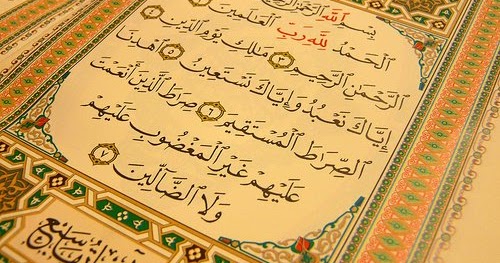 بِسْمِ ٱللَّهِ ٱلرَّحْمَٰنِ
ٱلْحَمْدُ لِلَّهِ رَبِّ ٱلْعَٰلَمِينَ
ٱلرَّحْمَٰنِ ٱلرَّحِيمِ ٣ مَٰلِكِ يَوْمِ ٱلدِّينِ ٤
إِيَّاكَ نَعْبُدُ وَإِيَّاكَ نَسْتَعِينُ ٥ ٱهْدِنَا
ٱلصِّرَٰطَ ٱلْمُسْتَقِيمَ ٦ صِرَٰطَ ٱلَّذِينَ أَنْعَمْتَ
عَلَيْهِمْ غَيْرِ ٱلْمَغْضُوبِ عَلَيْهِمْ
وَلَا ٱلضَّآلِّينَ ٧